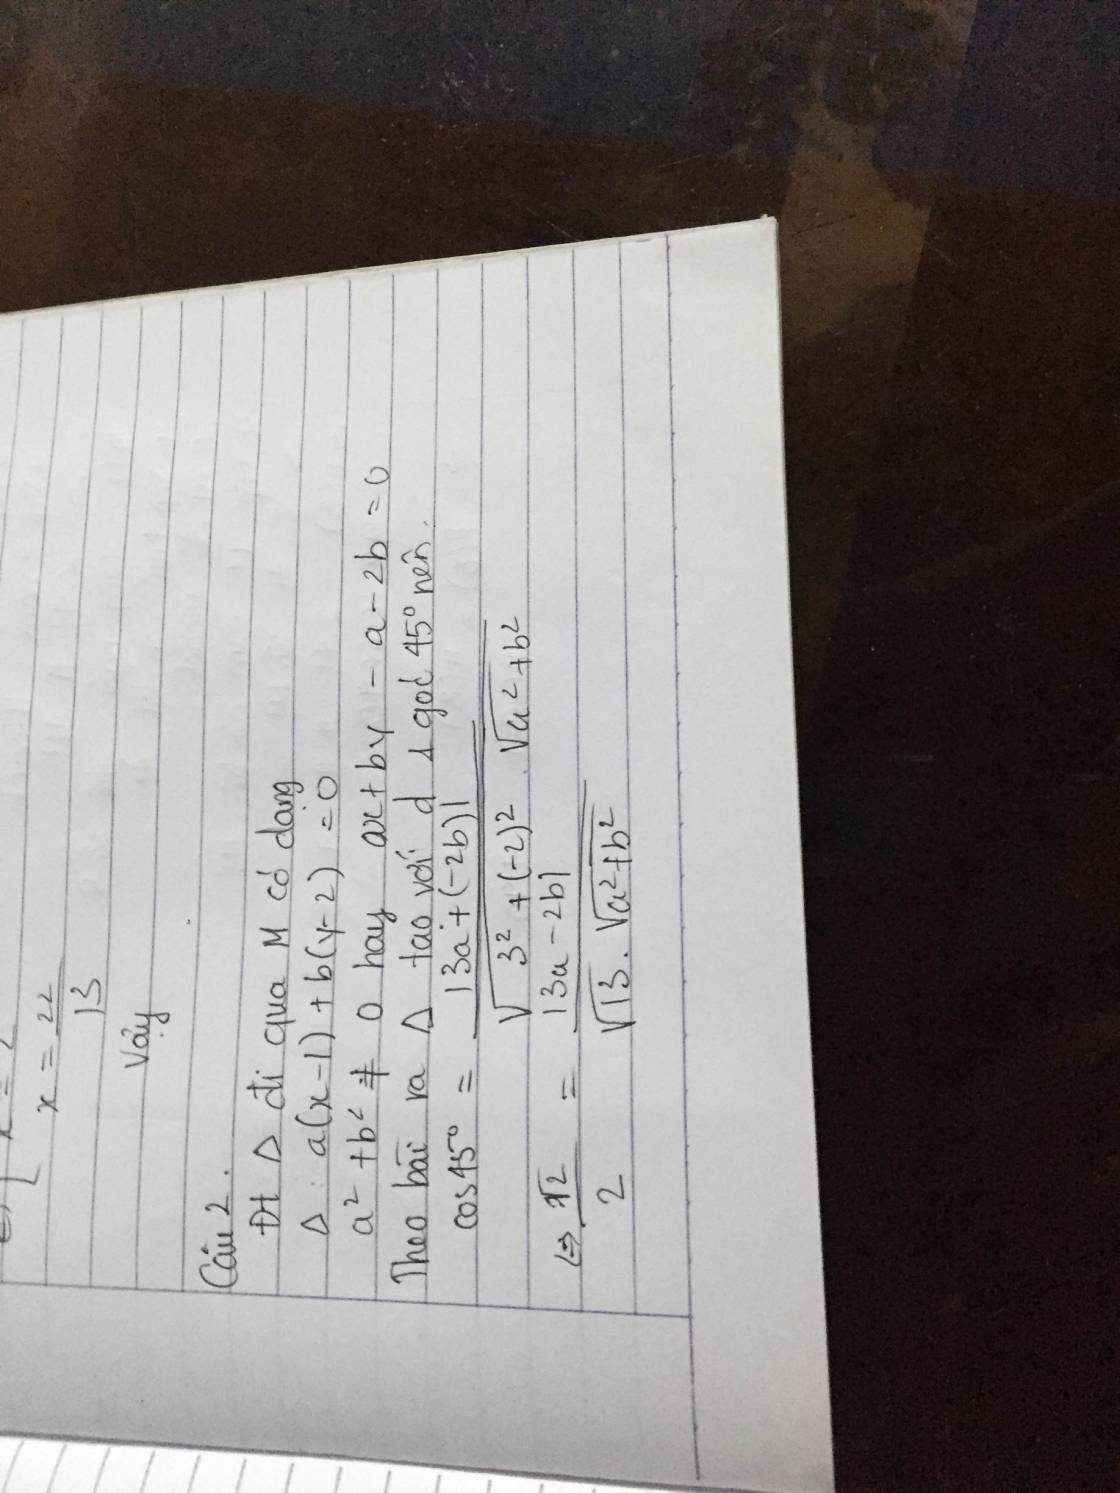 x = 22/13
Vậy
Câu 2.
Đt Δ đi qua M có dạng
Δ: a(x-1) + b(y-2) = 0
a² + b² ≠ 0 hay ax + by - a - 2b = 0
Theo bài ra Δ tạo với d 1 góc 45° nên.
cos45° = |3a + (-2b)| / √(3² + (-2)²) . √(a² + b²)
⇔ √2/2 = |3a - 2b| / √13 . √(a² + b²)